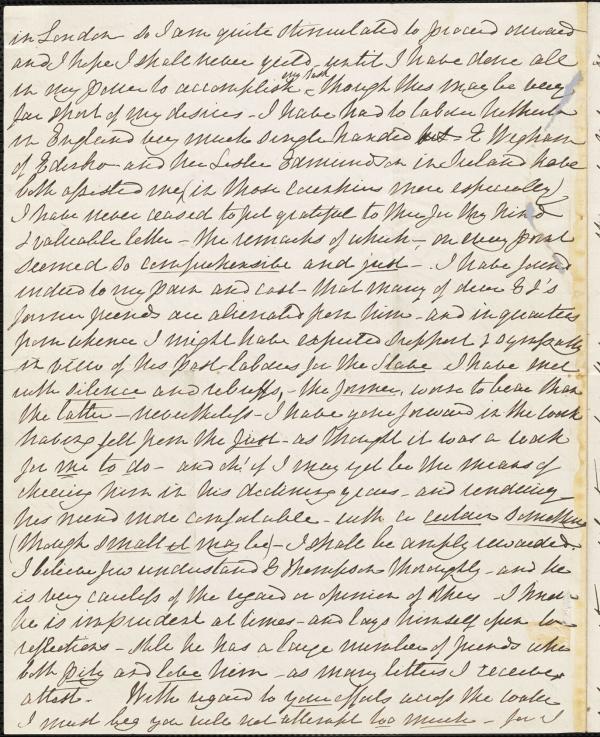 in London so I am quite stimulated to proceed onward
and I hope I shall never yield until I have done all
in my power to accomplish my task - Though this may be very
far short of my desires - I have had to labour hitherto
in England very much single handed - E Wigham
of Edinbro and her Sister Edmundson in Ireland have
both assisted me (in those countries more especially)
I have never ceased to feel grateful to thee for thy kind
& valuable letter - the remarks of which - on every point
seemed so comprehensible and just - I have found
indeed to my pain and cost - that many of dear G T's
former friends are alienated from him - and in quarters
from whence I might have expected support & sympathy
in view of his past labours for the Slave I have met
with silence and rebuffs, - the former, worse to bear than
the latter - nevertheless - I have gone forward in the work
having felt from the first - as though it was a work
for me to do - and oh! if I may yet be the means of
cheering him in his declining years - and rendering
his mind more comfortable - with a certain something
(though small it may be) - I shall be amply rewarded.
I believe few understand G Thompson thoroughly - and he
is very careless of the regard or opinion of others - I know
he is imprudent at times - and lays himself open to
reflections - still he has a large number of friends who
both pity and love him - as many letters I receive
attest - With regard to your efforts across the water
I must beg you will not attempt too much - for I